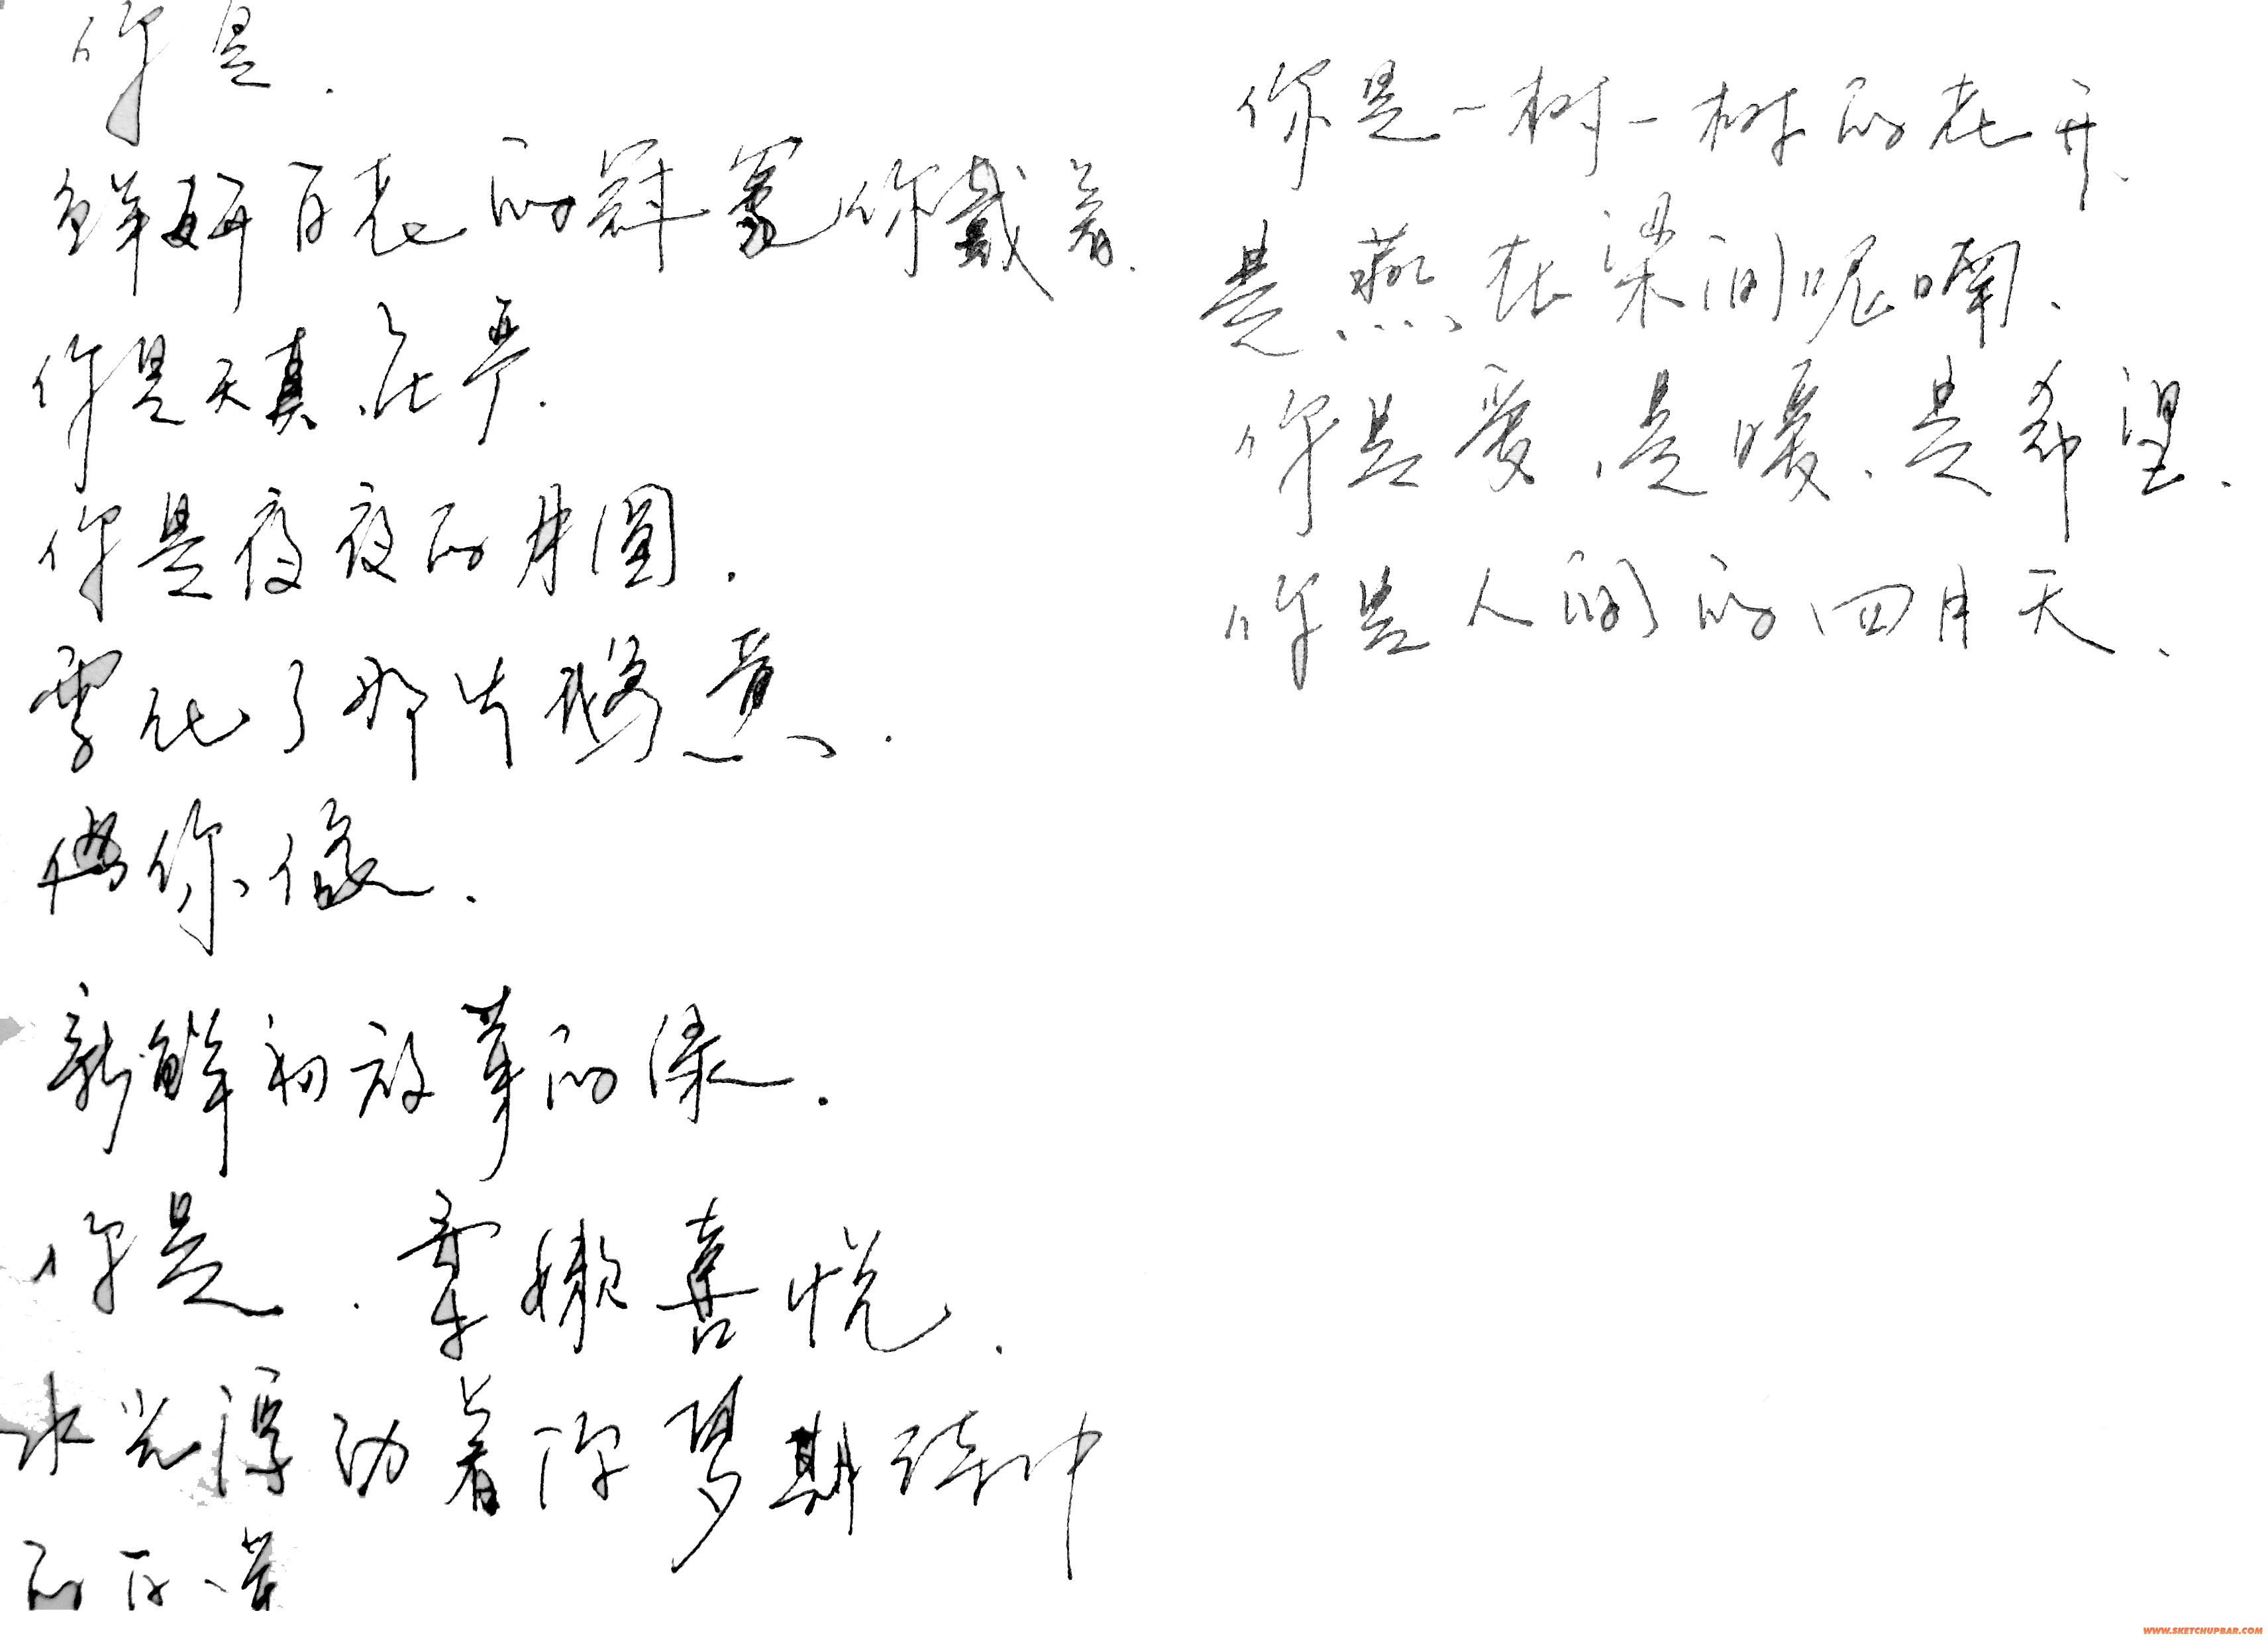 你是.
鲜妍百花的冠冕你戴着.
你是天真,庄严.
你是夜夜的月圆.
雪化了那片鹅黄.
你像.
新鲜初放芽的绿.
你是.柔嫩喜悦.
水光浮动着你梦期待中
的白莲
你是一树一树的花开、
是燕在梁间呢喃、
你是爱、是暖、是希望、
你是人间的四月天、
WWW.SKETCHUPBAR.COM